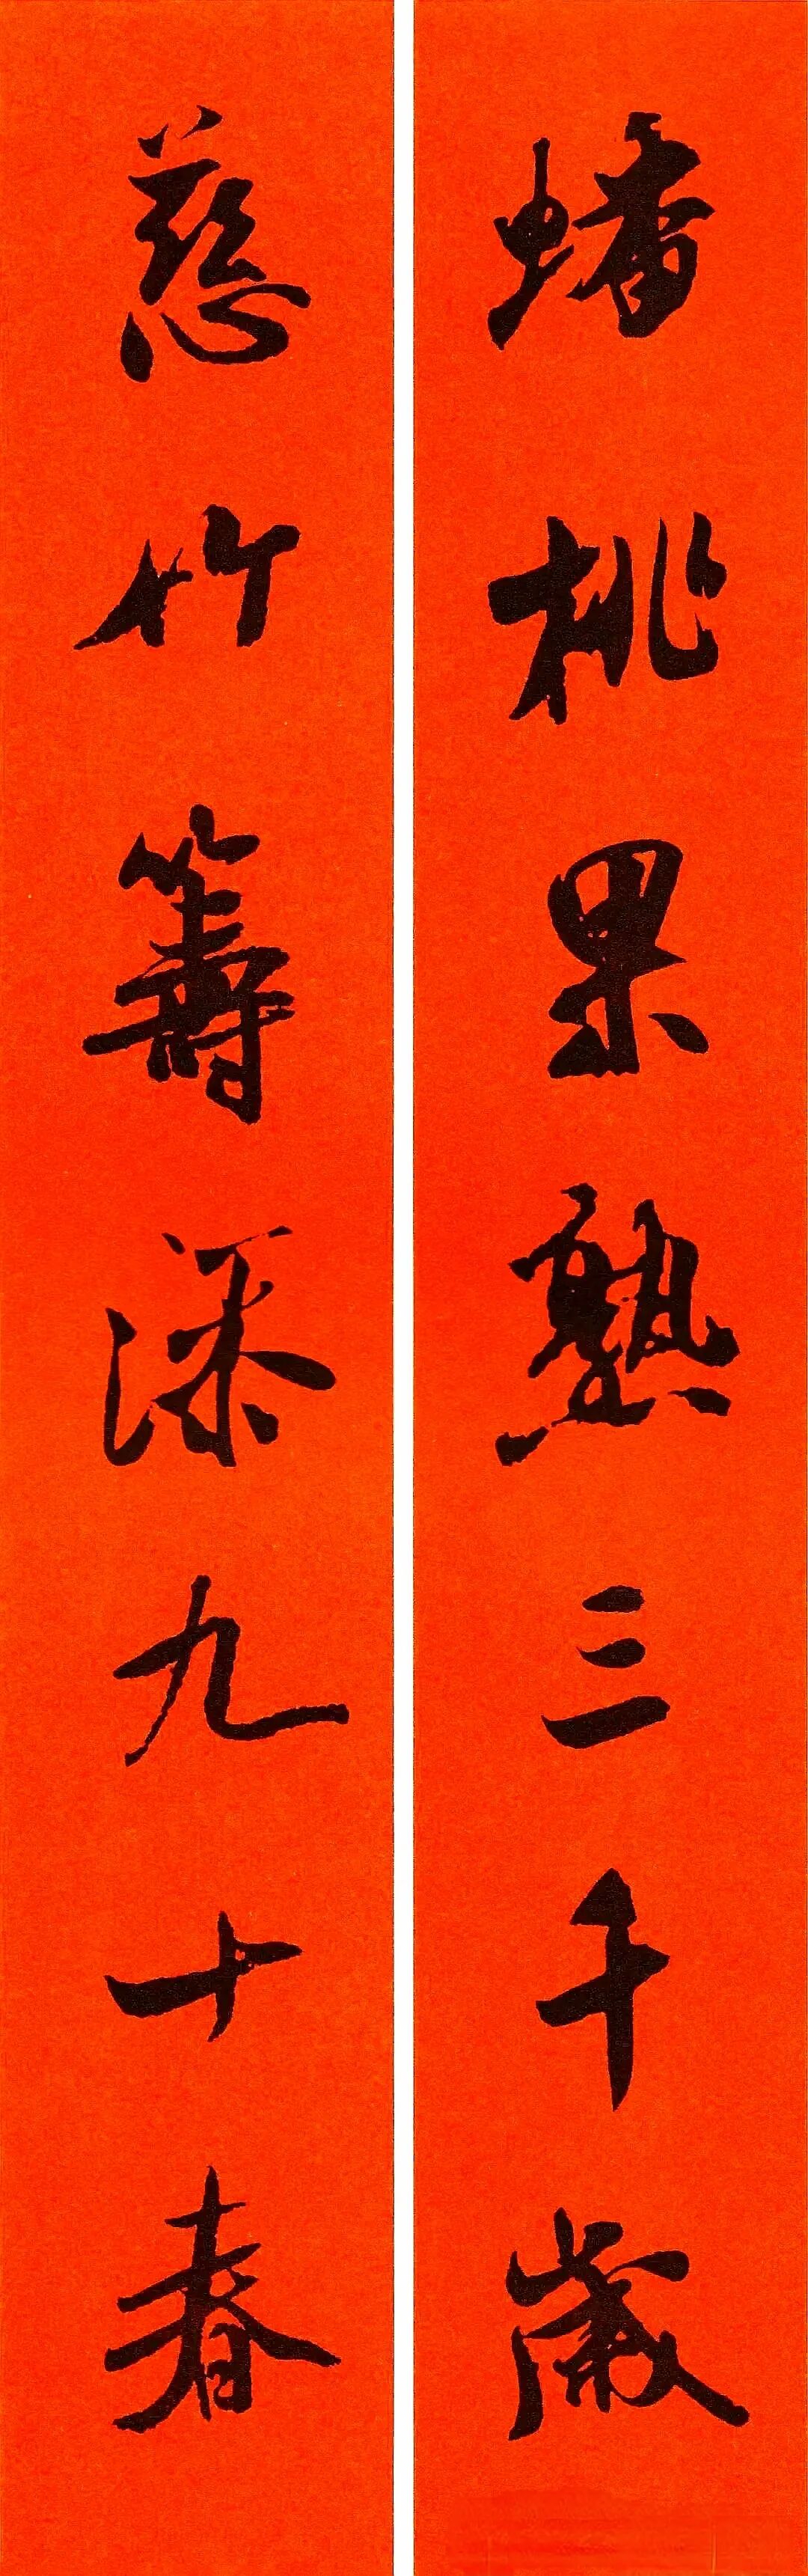 蟠桃果熟三千歲
慈竹籌添九十春